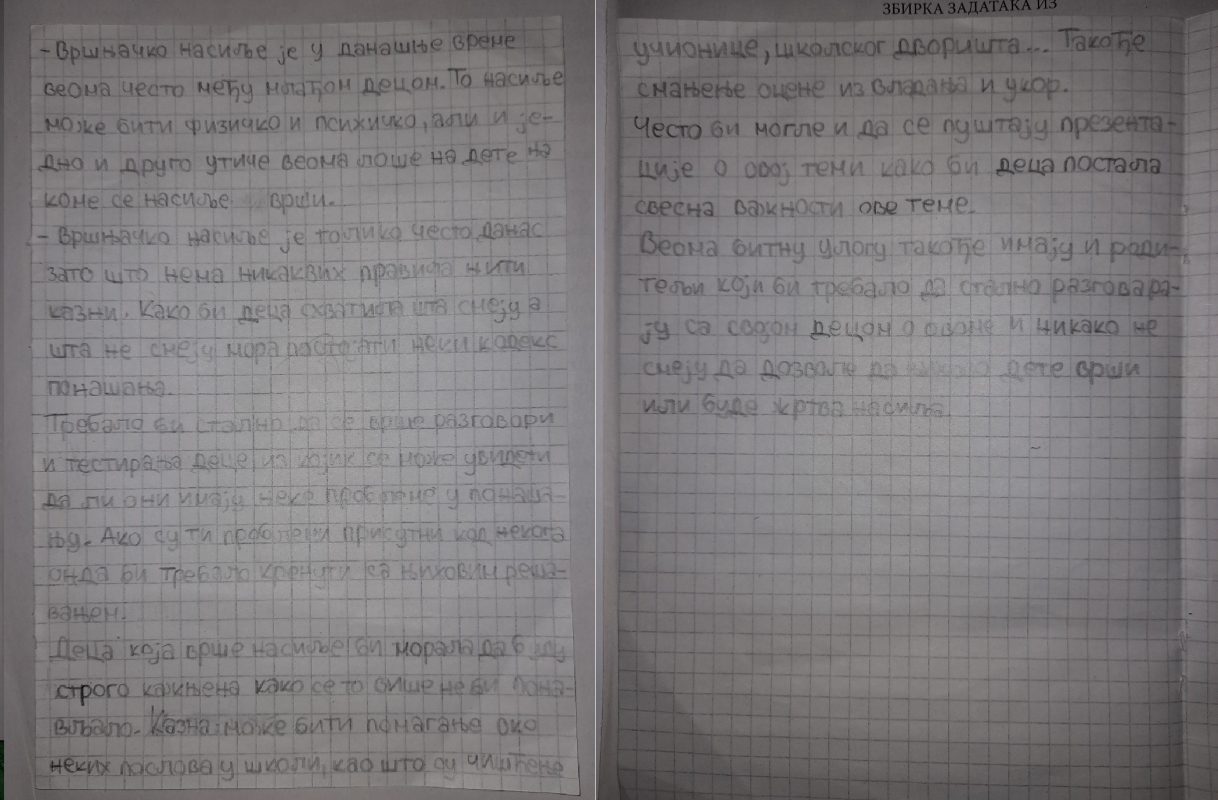 - Вршњачко насиље је у данашње време
веома често међу млађом децом. То насиље
може бити физичко и психичко, али и је-
дно и друго утиче веома лоше на дете на
коме се насиље врши.
- Вршњачко насиље је толико често данас
зато што нема никаквих правила нити
казни. Како би деца схватила шта смеју а
шта не смеју мора постојати неки кодекс
понашања.
Требало би стално да се врше разговори
и тестирања деце из којих се може увидети
да ли они имају неке проблеме у понаша-
њу. Ако су ти проблеми присутни код некога
онда би требало кренути са њиховим реша-
вањем.
Деца која врше насиље би морала да буду
строго кажњена како се то више не би пона-
вљало. Казна може бити помагање око
неких послова у школи, као што су чишћење
ЗБИРКА ЗАДАТАКА ИЗ
учионице, школског дворишта... Такође
смањење оцене из владања и укор.
Често би могле и да се пуштају презента-
ције о овој теми како би деца постала
свесна важности ове теме.
Веома битну улогу такође имају и роди-
тељи који би требало да стално разговара-
ју са својом децом о овоме и никако не
смеју да дозволе да њихово дете врши
или буде жртва насиља.